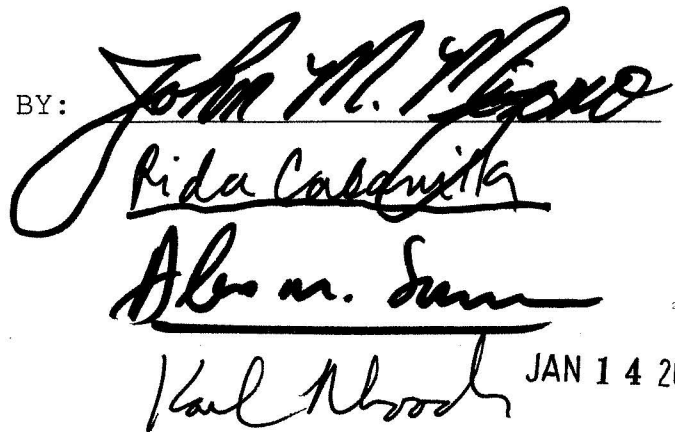 BY: John M. Mizuno
Rida Cabanilla
Karl Rhoads
JAN 14 20